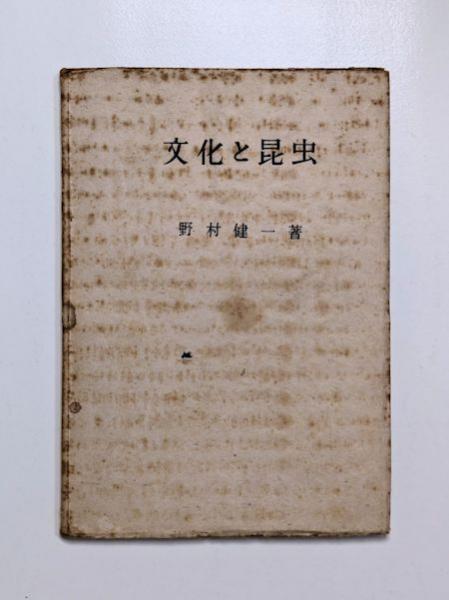 文化と昆虫
野村健一著